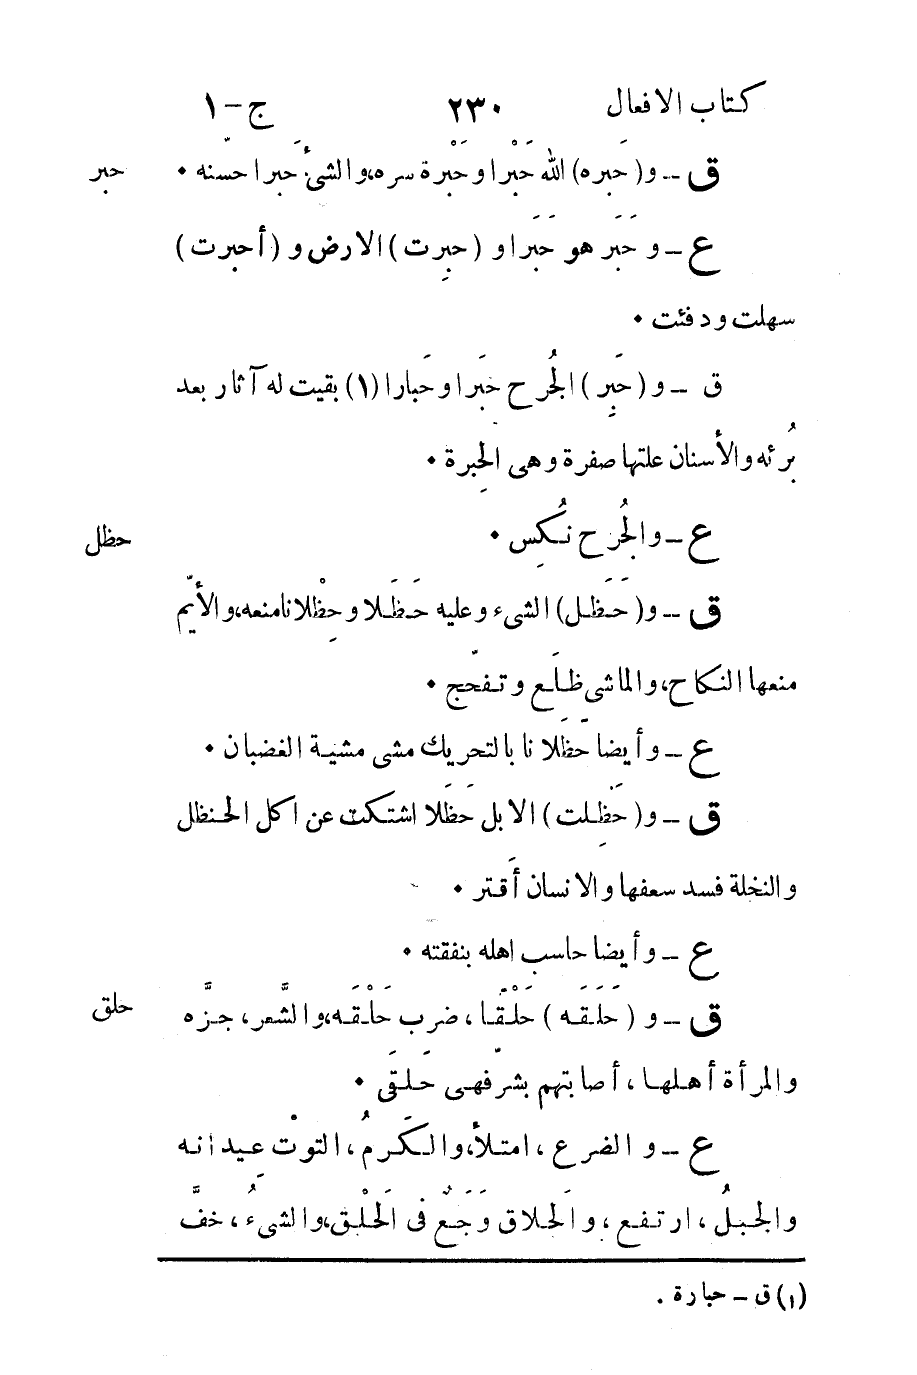 كتاب الافعال ٢٣٠ ج - ١
ق - و (حَبَره) الله حَبْرا وحَبْرة سره، والشئَ حَبرا حسّنه . حبر
ع - و حَبَر هو حَبَرا و (حبِرت) الارض و (أحبرت)
سهلت ودفئت .
ق - و (حَبِر) الجُرح حَبَرا وحَبارا (١) بقيت له آثار بعد
بُرئه والأسنان علتها صفرة وهى الحِبرة .
ع - والجُرح نُكِس . حظل
ق - و (حَظَل) الشىء وعليه حَظْلا وحِظْلانا منعه، والأيّم
منعها النكاح، والماشى ظلَع وتفحّج .
ع - وأيضا حَظَلانا بالتحريك مشى مشية الغضبان .
ق - و (حَظِلت) الابل حَظَلا اشتكت عن اكل الحنظل
والنخلة فسد سعفها والانسان أَقتر .
ع - وأيضا حاسب اهله بنفقته .
ق - و (حَلَقَه) حَلْقًا، ضرب حَلْقَه، والشَّعر، جزَّه حلق
والمرأة أهلها، أصابتهم بشرّ فهى حَلقَى .
ع - و الضرع، امتلأ، والكَرمُ، التوتْ عِيدانه
والجبلُ، ارتفع، والَحلاق وَجَعٌ فى الَحلْق، والشىءُ، خفَّ
(١) ق - حبارة .